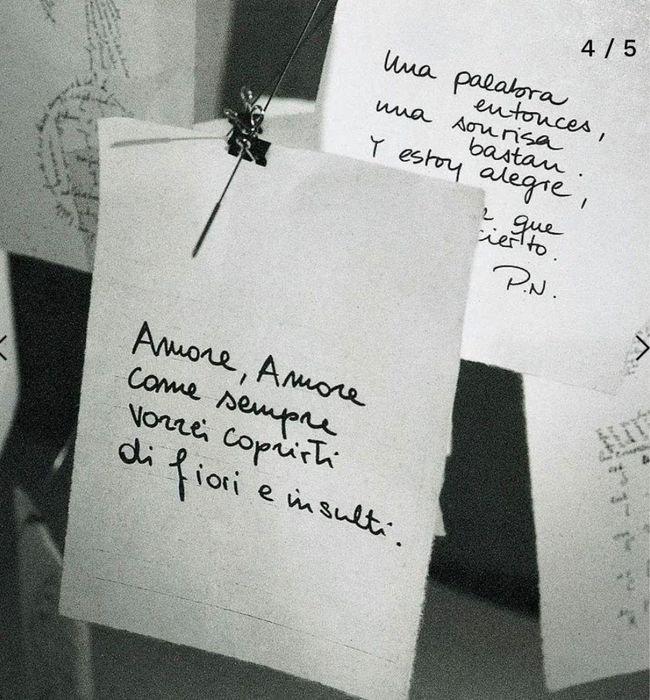 4 / 5
Una palabra
entonces,
una sonrisa
bastan.
Y estoy alegre,
que
cierto.
P.N.
Amore, Amore
come sempre
vorrei coprirti
di fiori e insulti.